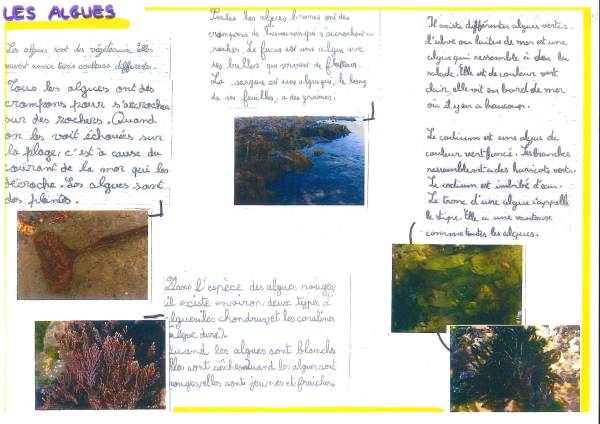 LES ALGUES
Les algues sont des végétaux. Elles
peuvent avoir trois couleurs différentes.
Tous les algues ont des
crampons pour s'accrocher
sur des rochers. Quand
on les voit échouées sur
la plage, c'est à cause du
courant de la mer qui les
décroche. Les algues sont
des plantes.
Toutes les algues brunes ont des
crampons de laminaires qui s'accrochent au
rocher. Le fucus est une algue avec
des bulles qui servent de flotteurs.
La sargasse est une algue qui, le long
de ses feuilles, a des graines.
Dans l'espèce des algues rouges,
il existe environ deux types d'
algues: les chondrus, et les coralines
(algue dure).
Quand les algues sont blanches
elles sont sèches. Quand les algues sont
rouges, elles sont jeunes et fraîches.
Il existe différentes algues vertes.
L'ulve ou laitue de mer est une
algue qui ressemble à de la
salade. Elle est de couleur vert
clair, elle vit en bord de mer
où il y en a beaucoup.
Le codium est une algue de
couleur vert foncé. Ses branches
ressemblent à des haricots verts.
Le codium est imbibé d'eau.
Le tronc d'une algue s'appelle
le stipe. Elle a une ventouse
comme toutes les algues.